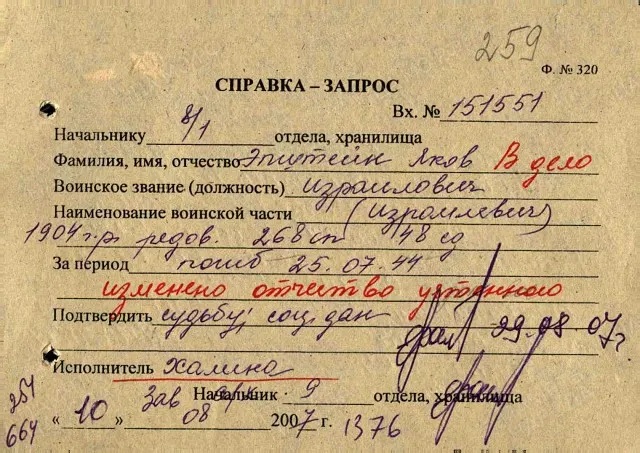 259
Ф. № 320
СПРАВКА – ЗАПРОС
Вх. № 151551
Начальнику 8/1 отдела, хранилища
Фамилия, имя, отчество Эпштейн Яков В дело
Воинское звание (должность) Израилович
Наименование воинской части (Израилевич)
1904 г.р. рядов. 268 сп 48 сд
За период погиб 25.07.44
изменено отчество утенного
Подтвердить судьбу, соц.дан 29.08.07г
Исполнитель Халина
Зав Начальник 9 отдела, хранилища
254
664
« 10 » 08 2007 г. 1376